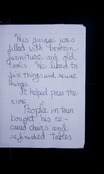 His garage was
filled with broken
furniture and old
tools. He liked to
fix things and reuse
things.
It helped pass the
time.
People in town
bought his re-
caned chairs and
refinished tables